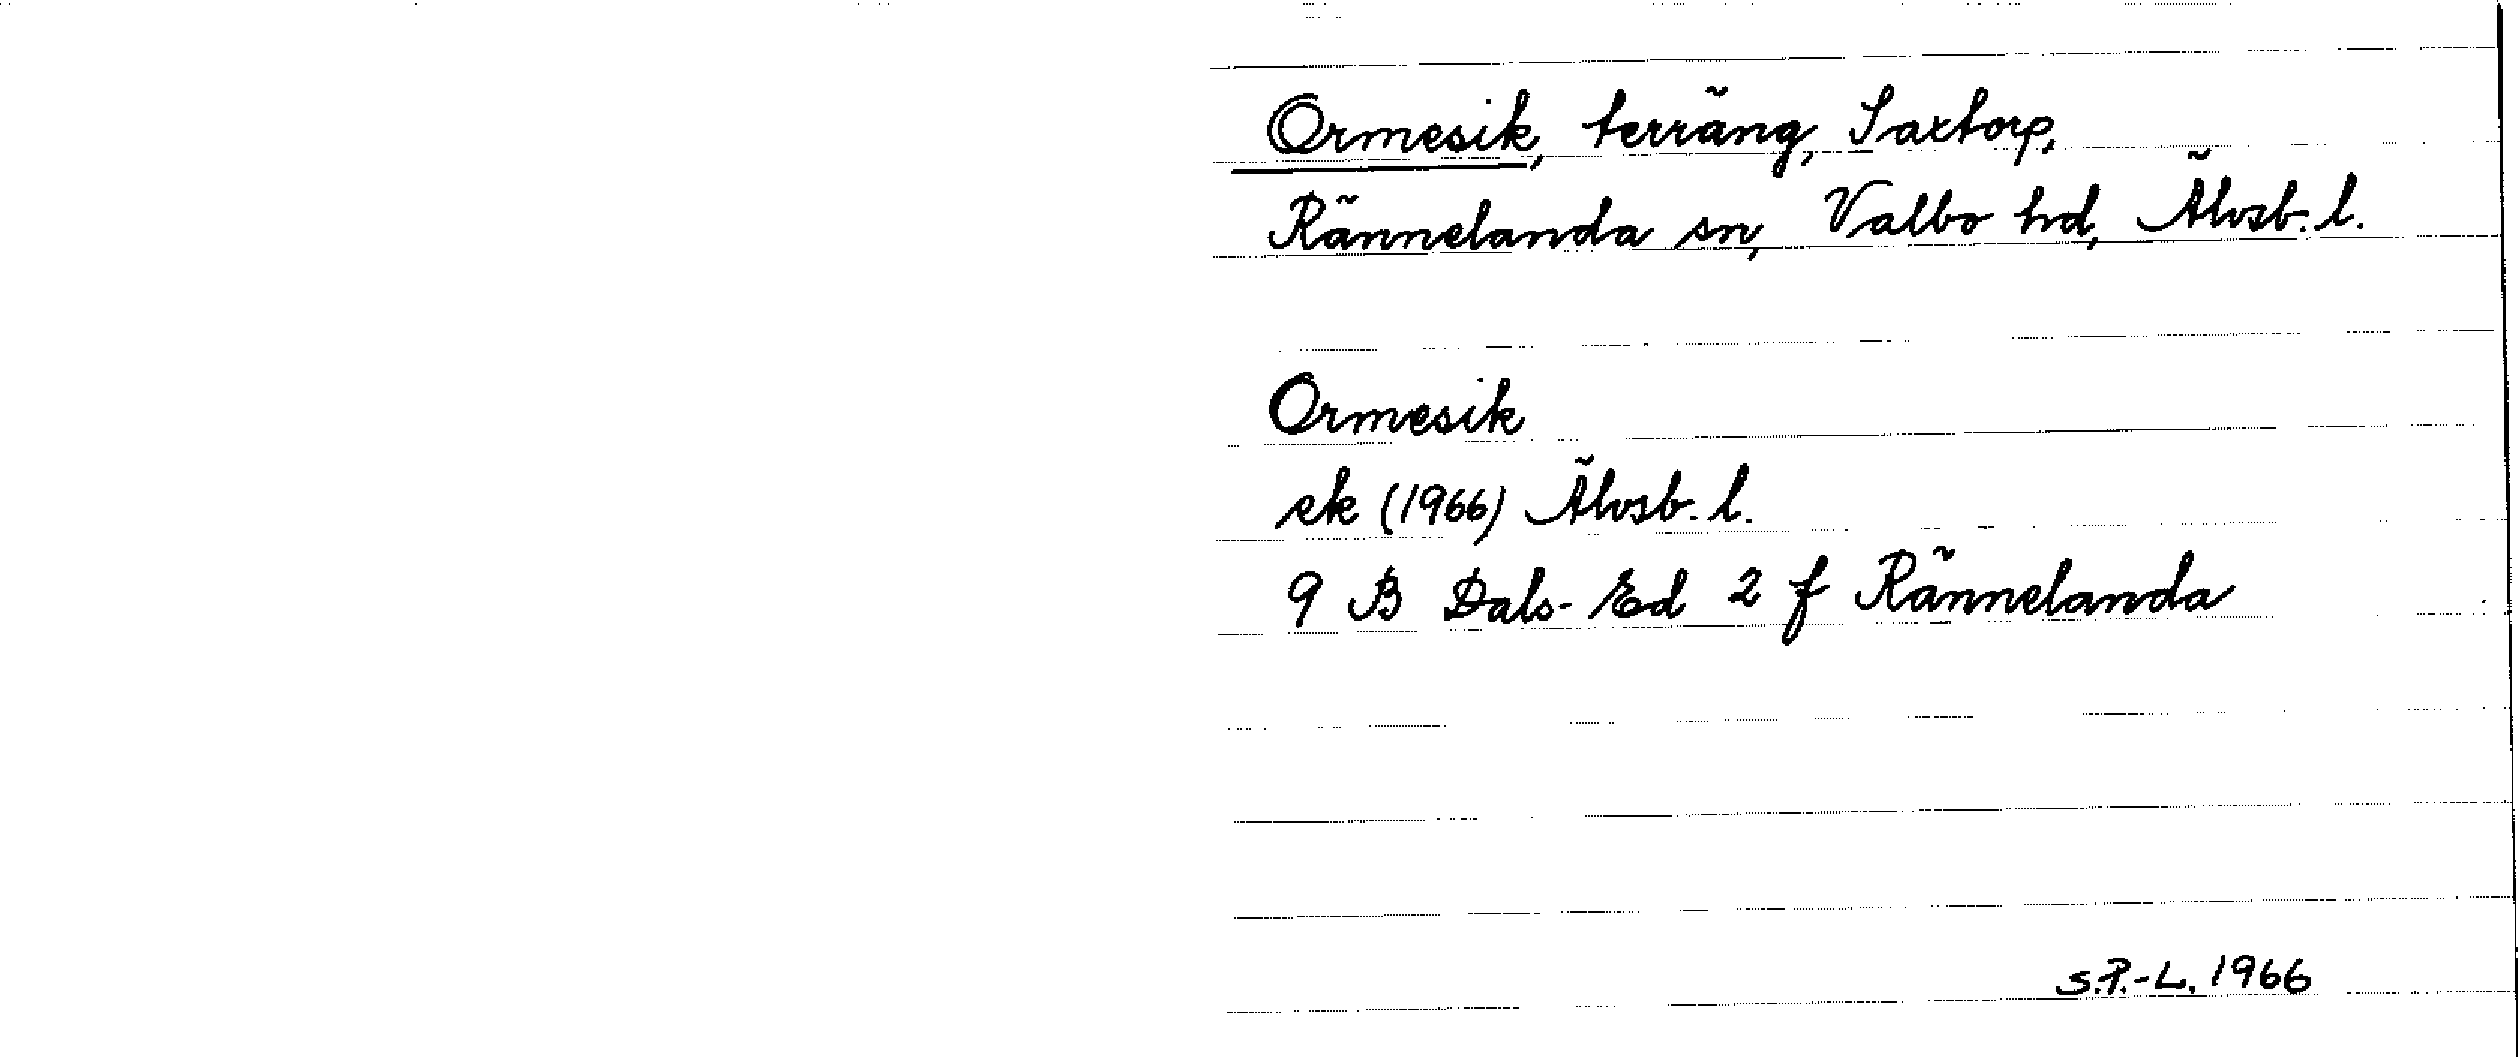 Ormesik, terräng, Saxtorp,
Rännelanda sn, Valbo hd, Älvsb. l.
Ormesik
ek (1966) Älvsb. l.
9 B Dals-Ed 2 f Rännelanda
S.P.-L. 1966